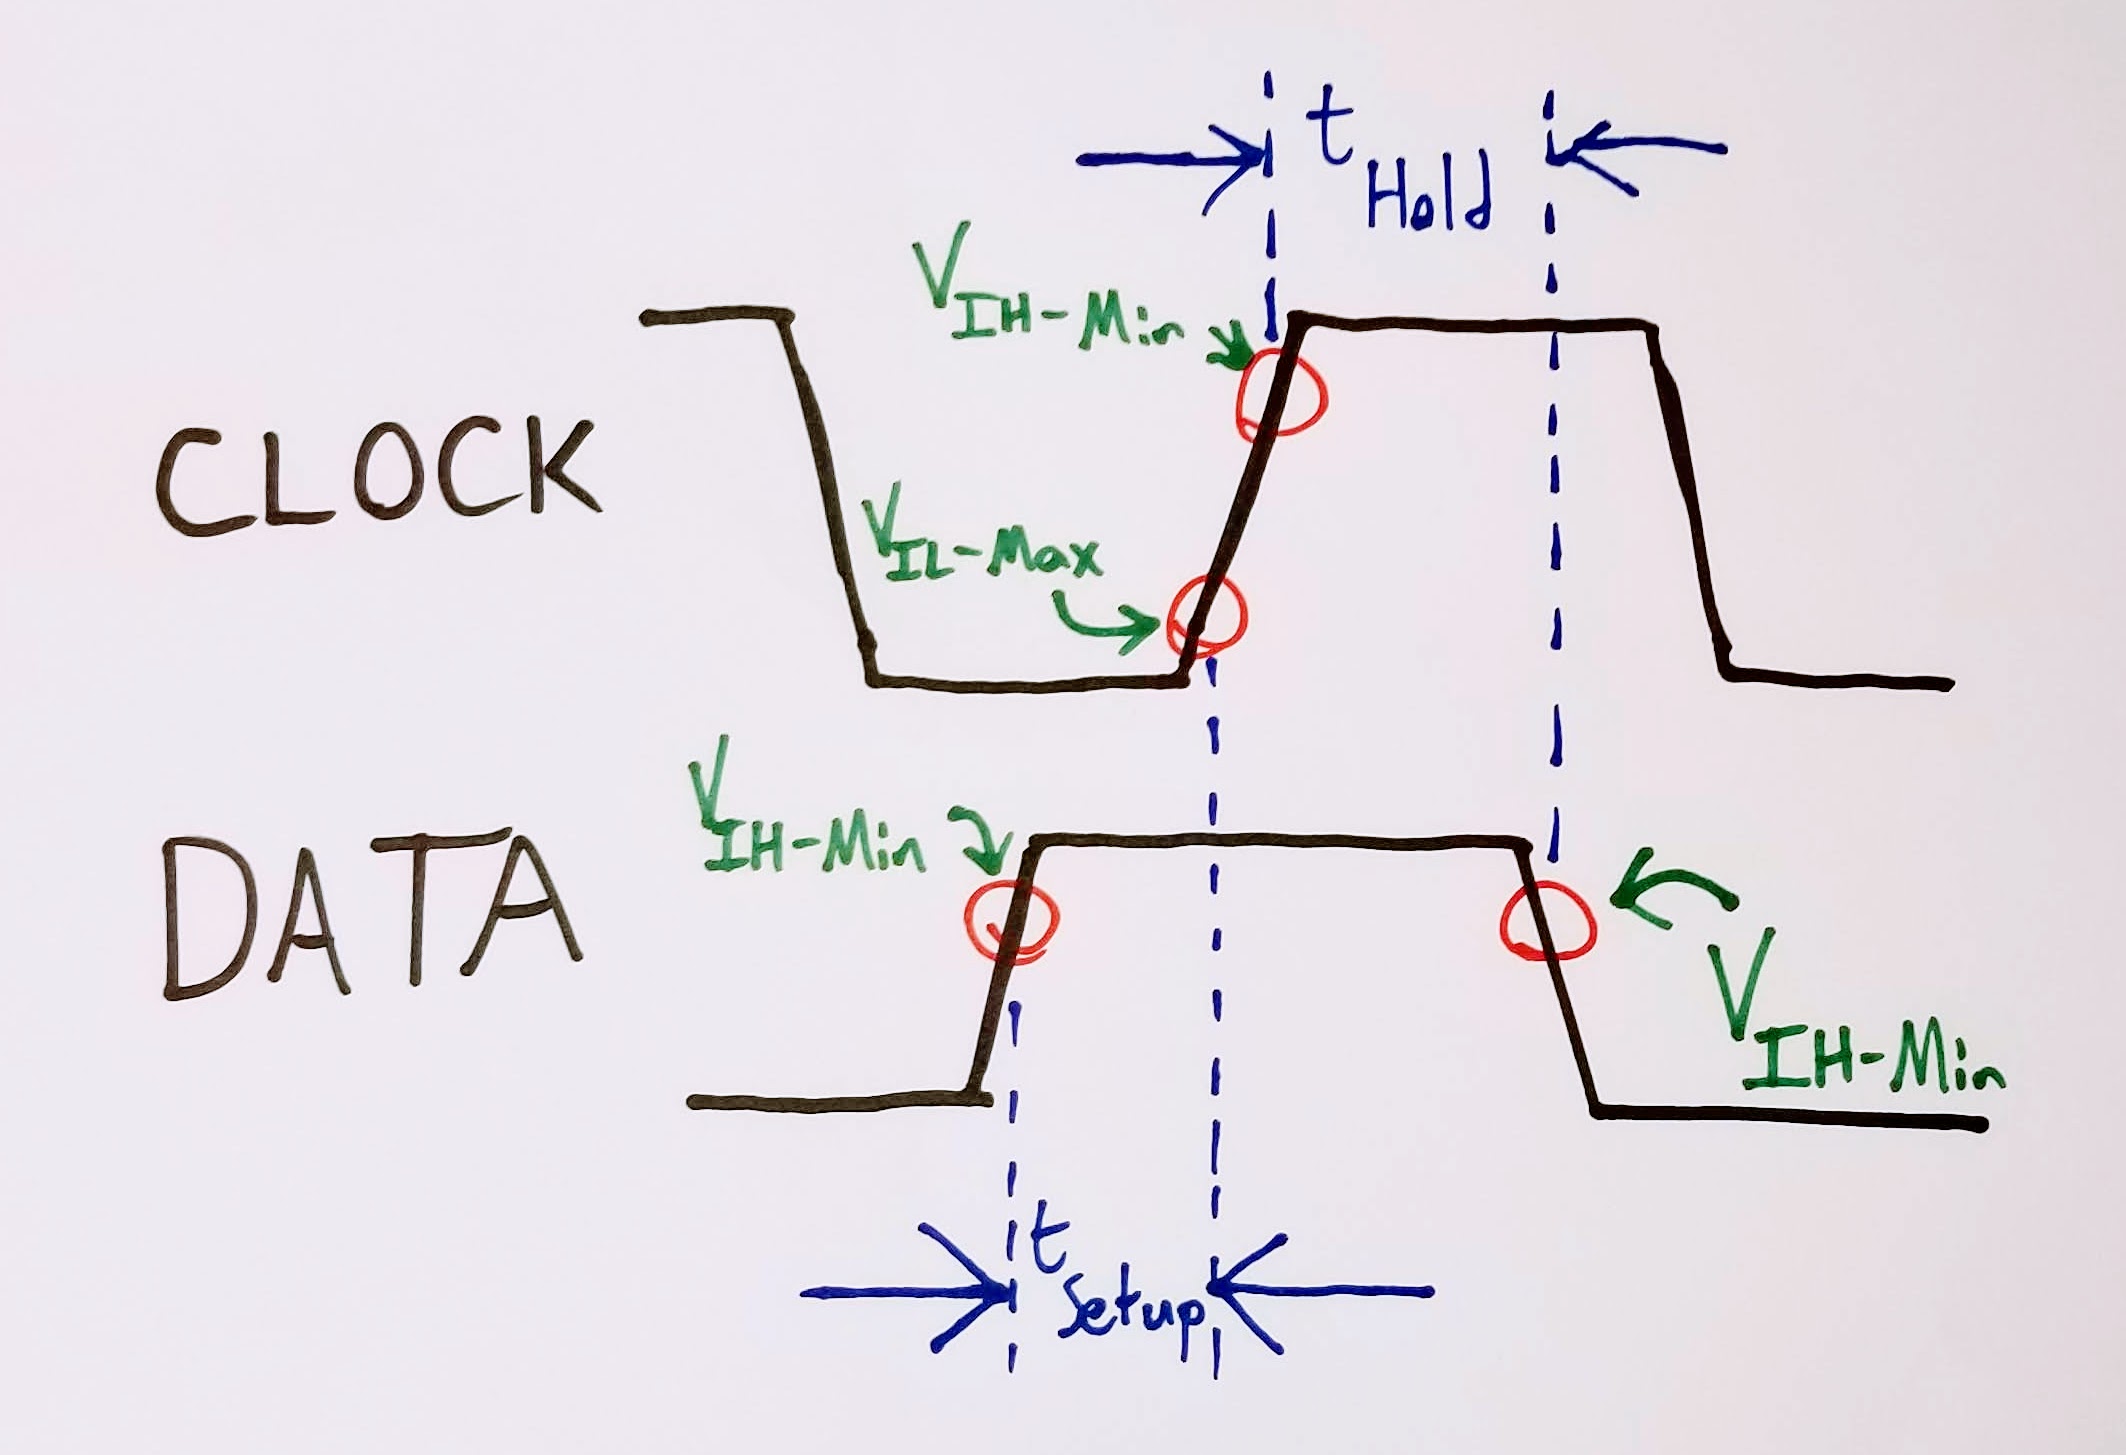 t Hold
V IH-Min
CLOCK
V IL-Max
V IH-Min
DATA
V IH-Min
t Setup